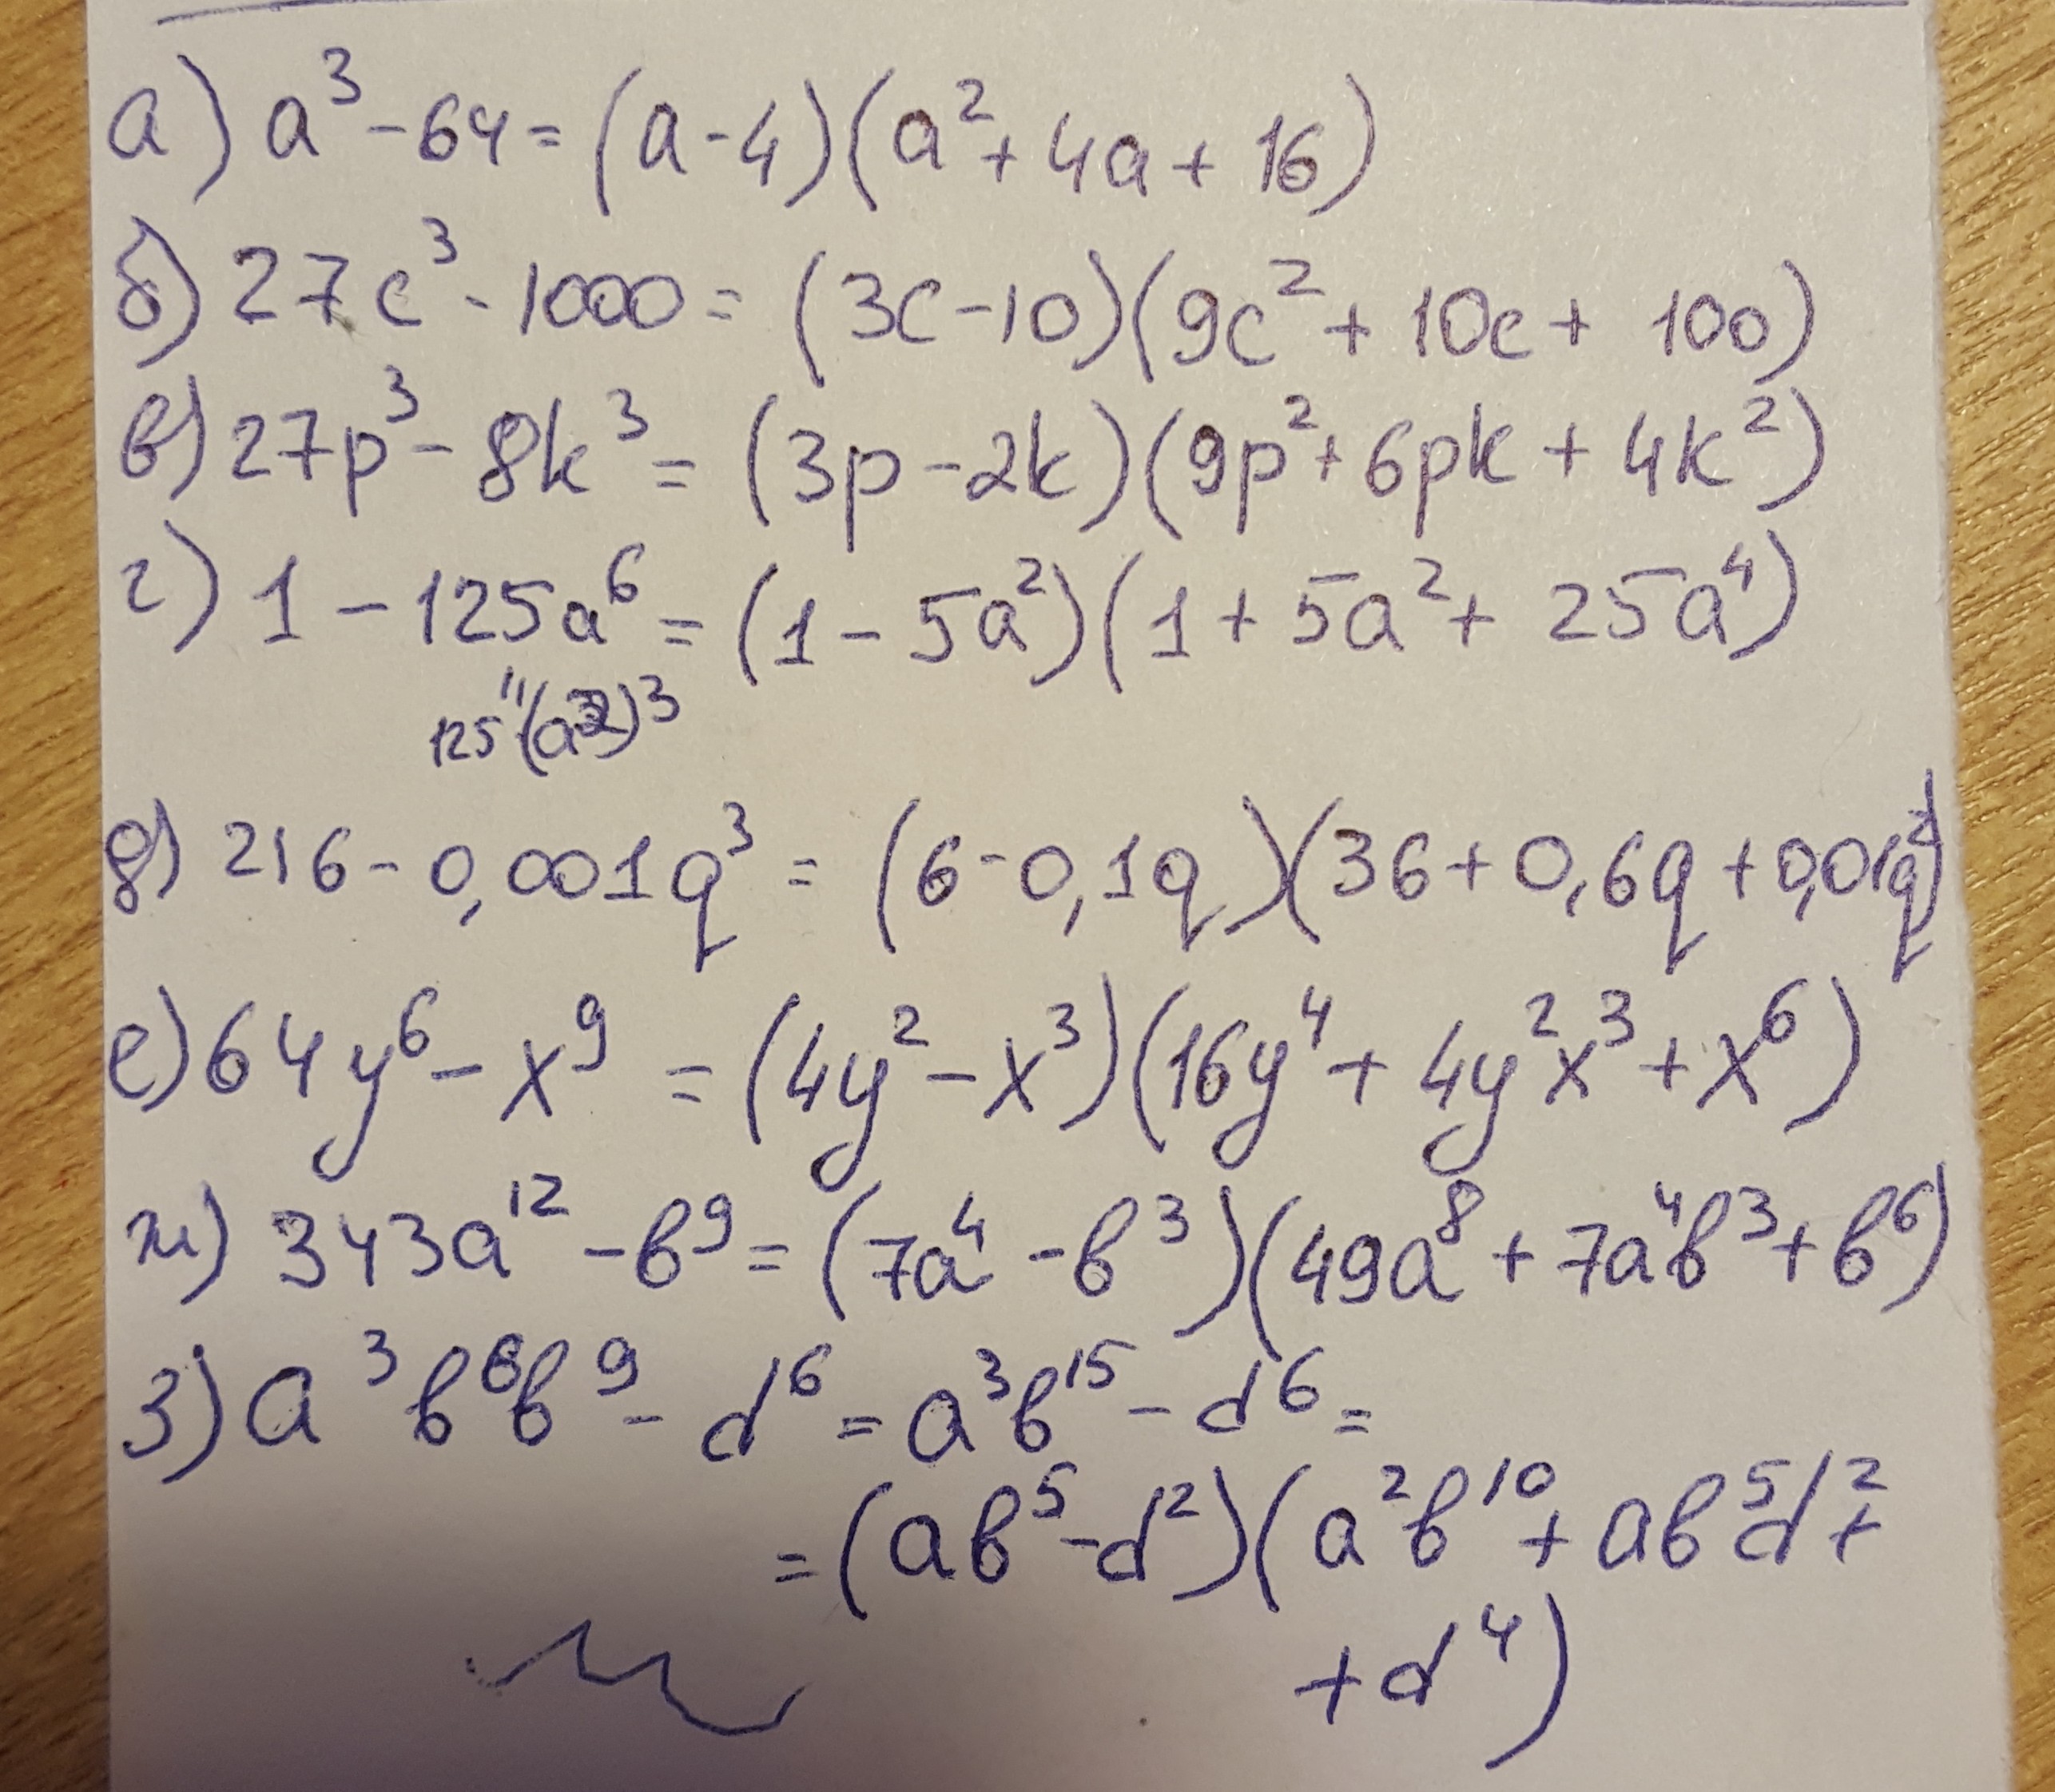 а) a³ - 64 = (a - 4)(a² + 4a + 16)
б) 27c³ - 1000 = (3c - 10)(9c² + 10c + 100)
в) 27p³ - 8k³ = (3p - 2k)(9p² + 6pk + 4k²)
г) 1 - 125a⁶ = (1 - 5a²)(1 + 5a² + 25a⁴)
"
125(a²)³
д) 216 - 0,001q³ = (6 - 0,1q)(36 + 0,6q + 0,01q²)
е) 64y⁶ - x⁹ = (4y² - x³)(16y⁴ + 4y²x³ + x⁶)
ж) 343a¹² - b⁹ = (7a⁴ - b³)(49a⁸ + 7a⁴b³ + b⁶)
з) a³b⁶b⁹ - d⁶ = a³b¹⁵ - d⁶ =
= (ab⁵ - d²)(a²b¹⁰ + ab⁵d² +
+ d⁴)